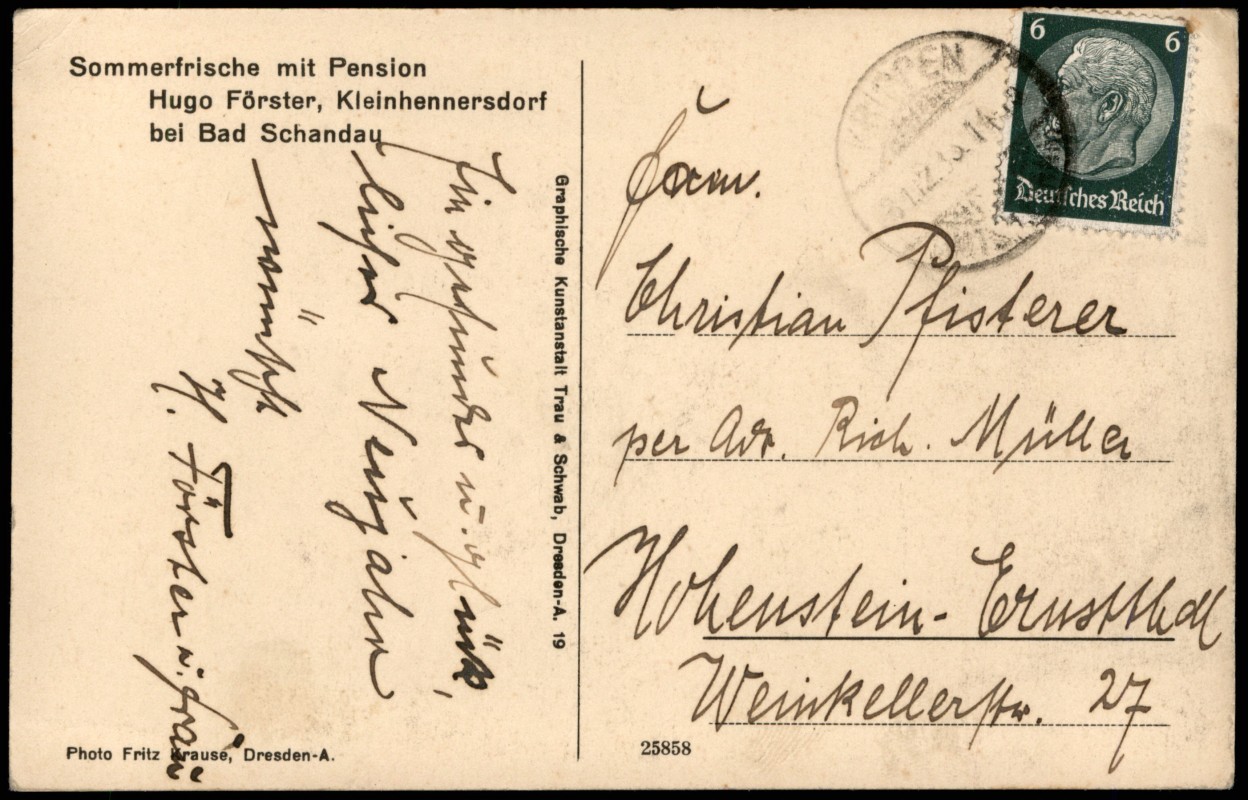 Sommerfrische mit Pension
Hugo Förster, Kleinhennersdorf
bei Bad Schandau
Ein gesundes u. glück-
liches Neujahr
wünscht
H. Förster u. Frau
Photo Fritz Krause, Dresden-A.
Graphische Kunstanstalt Trau & Schwab, Dresden-A. 19
6 6
Deutsches Reich
KRIPPEN
31.12.
Fam.
Christian Pfisterer
per Adr. Rich. Müller
Hohenstein-Ernstthal
Weinkellerstr. 27
25858